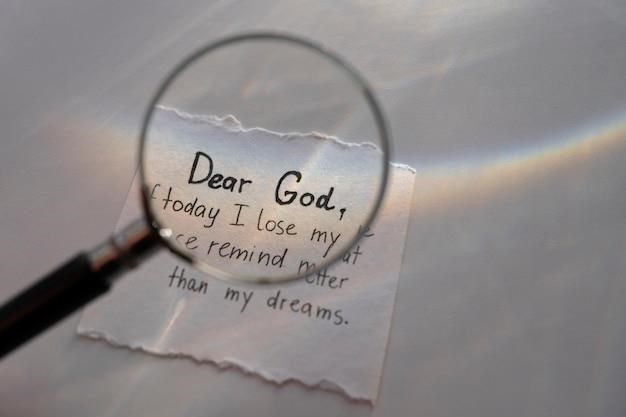 Dear God,
f today I lose my e
ce remind m at
etter
than my dreams.